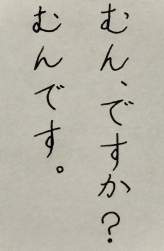 むん、ですか?
むんです。